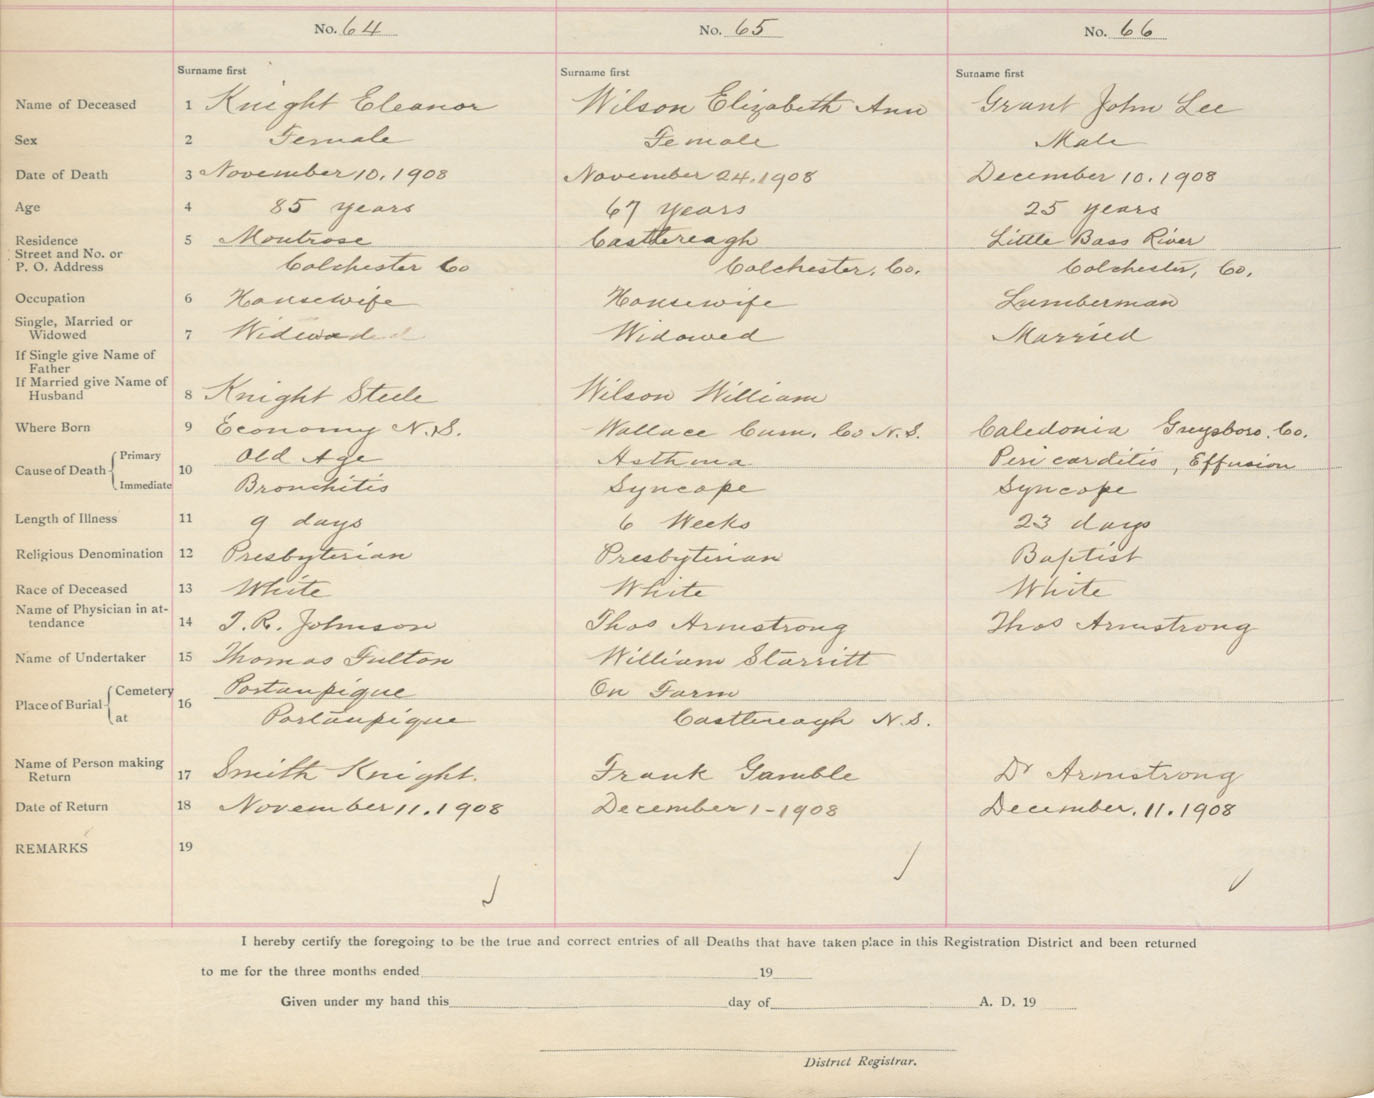 No. 64 No. 65 No. 66
Surname first Surname first Surname first
Name of Deceased 1 Knight Eleanor Wilson Elizabeth Ann Grant John Lee
Sex 2 Female Female Male
Date of Death 3 November 10. 1908 November 24. 1908 December 10. 1908
Age 4 85 years 67 years 25 years
Residence 5 Montrose Castlereagh Little Bass River
Street and No. or
P. O. Address Colchester Co Colchester. Co. Colchester, Co.
Occupation 6 Housewife Housewife Lumberman
Single, Married or
Widowed 7 Widowed Widowed Married
If Single give Name of
Father
If Married give Name of
Husband 8 Knight Steele Wilson William
Where Born 9 Economy N.S. Wallace Cum. Co N.S. Caledonia Greysboro. Co.
Cause of Death Primary 10 Old Age Asthma Pericarditis, Effusion
Immediate Bronchitis Syncope Syncope
Length of Illness 11 9 days 6 Weeks 23 days
Religious Denomination 12 Presbyterian Presbyterian Baptist
Race of Deceased 13 White White White
Name of Physician in at-
tendance 14 T. R. Johnson Thos Armstrong Thos Armstrong
Name of Undertaker 15 Thomas Fulton William Starritt
Place of Burial Cemetery 16 Portaupique On Farm
at Portaupique Castlereagh N.S.
Name of Person making
Return 17 Smith Knight. Frank Gamble Dr Armstrong
Date of Return 18 November 11. 1908 December 1-1908 December. 11. 1908
REMARKS 19
I hereby certify the foregoing to be the true and correct entries of all Deaths that have taken place in this Registration District and been returned
to me for the three months ended 19
Given under my hand this day of A. D. 19
District Registrar.